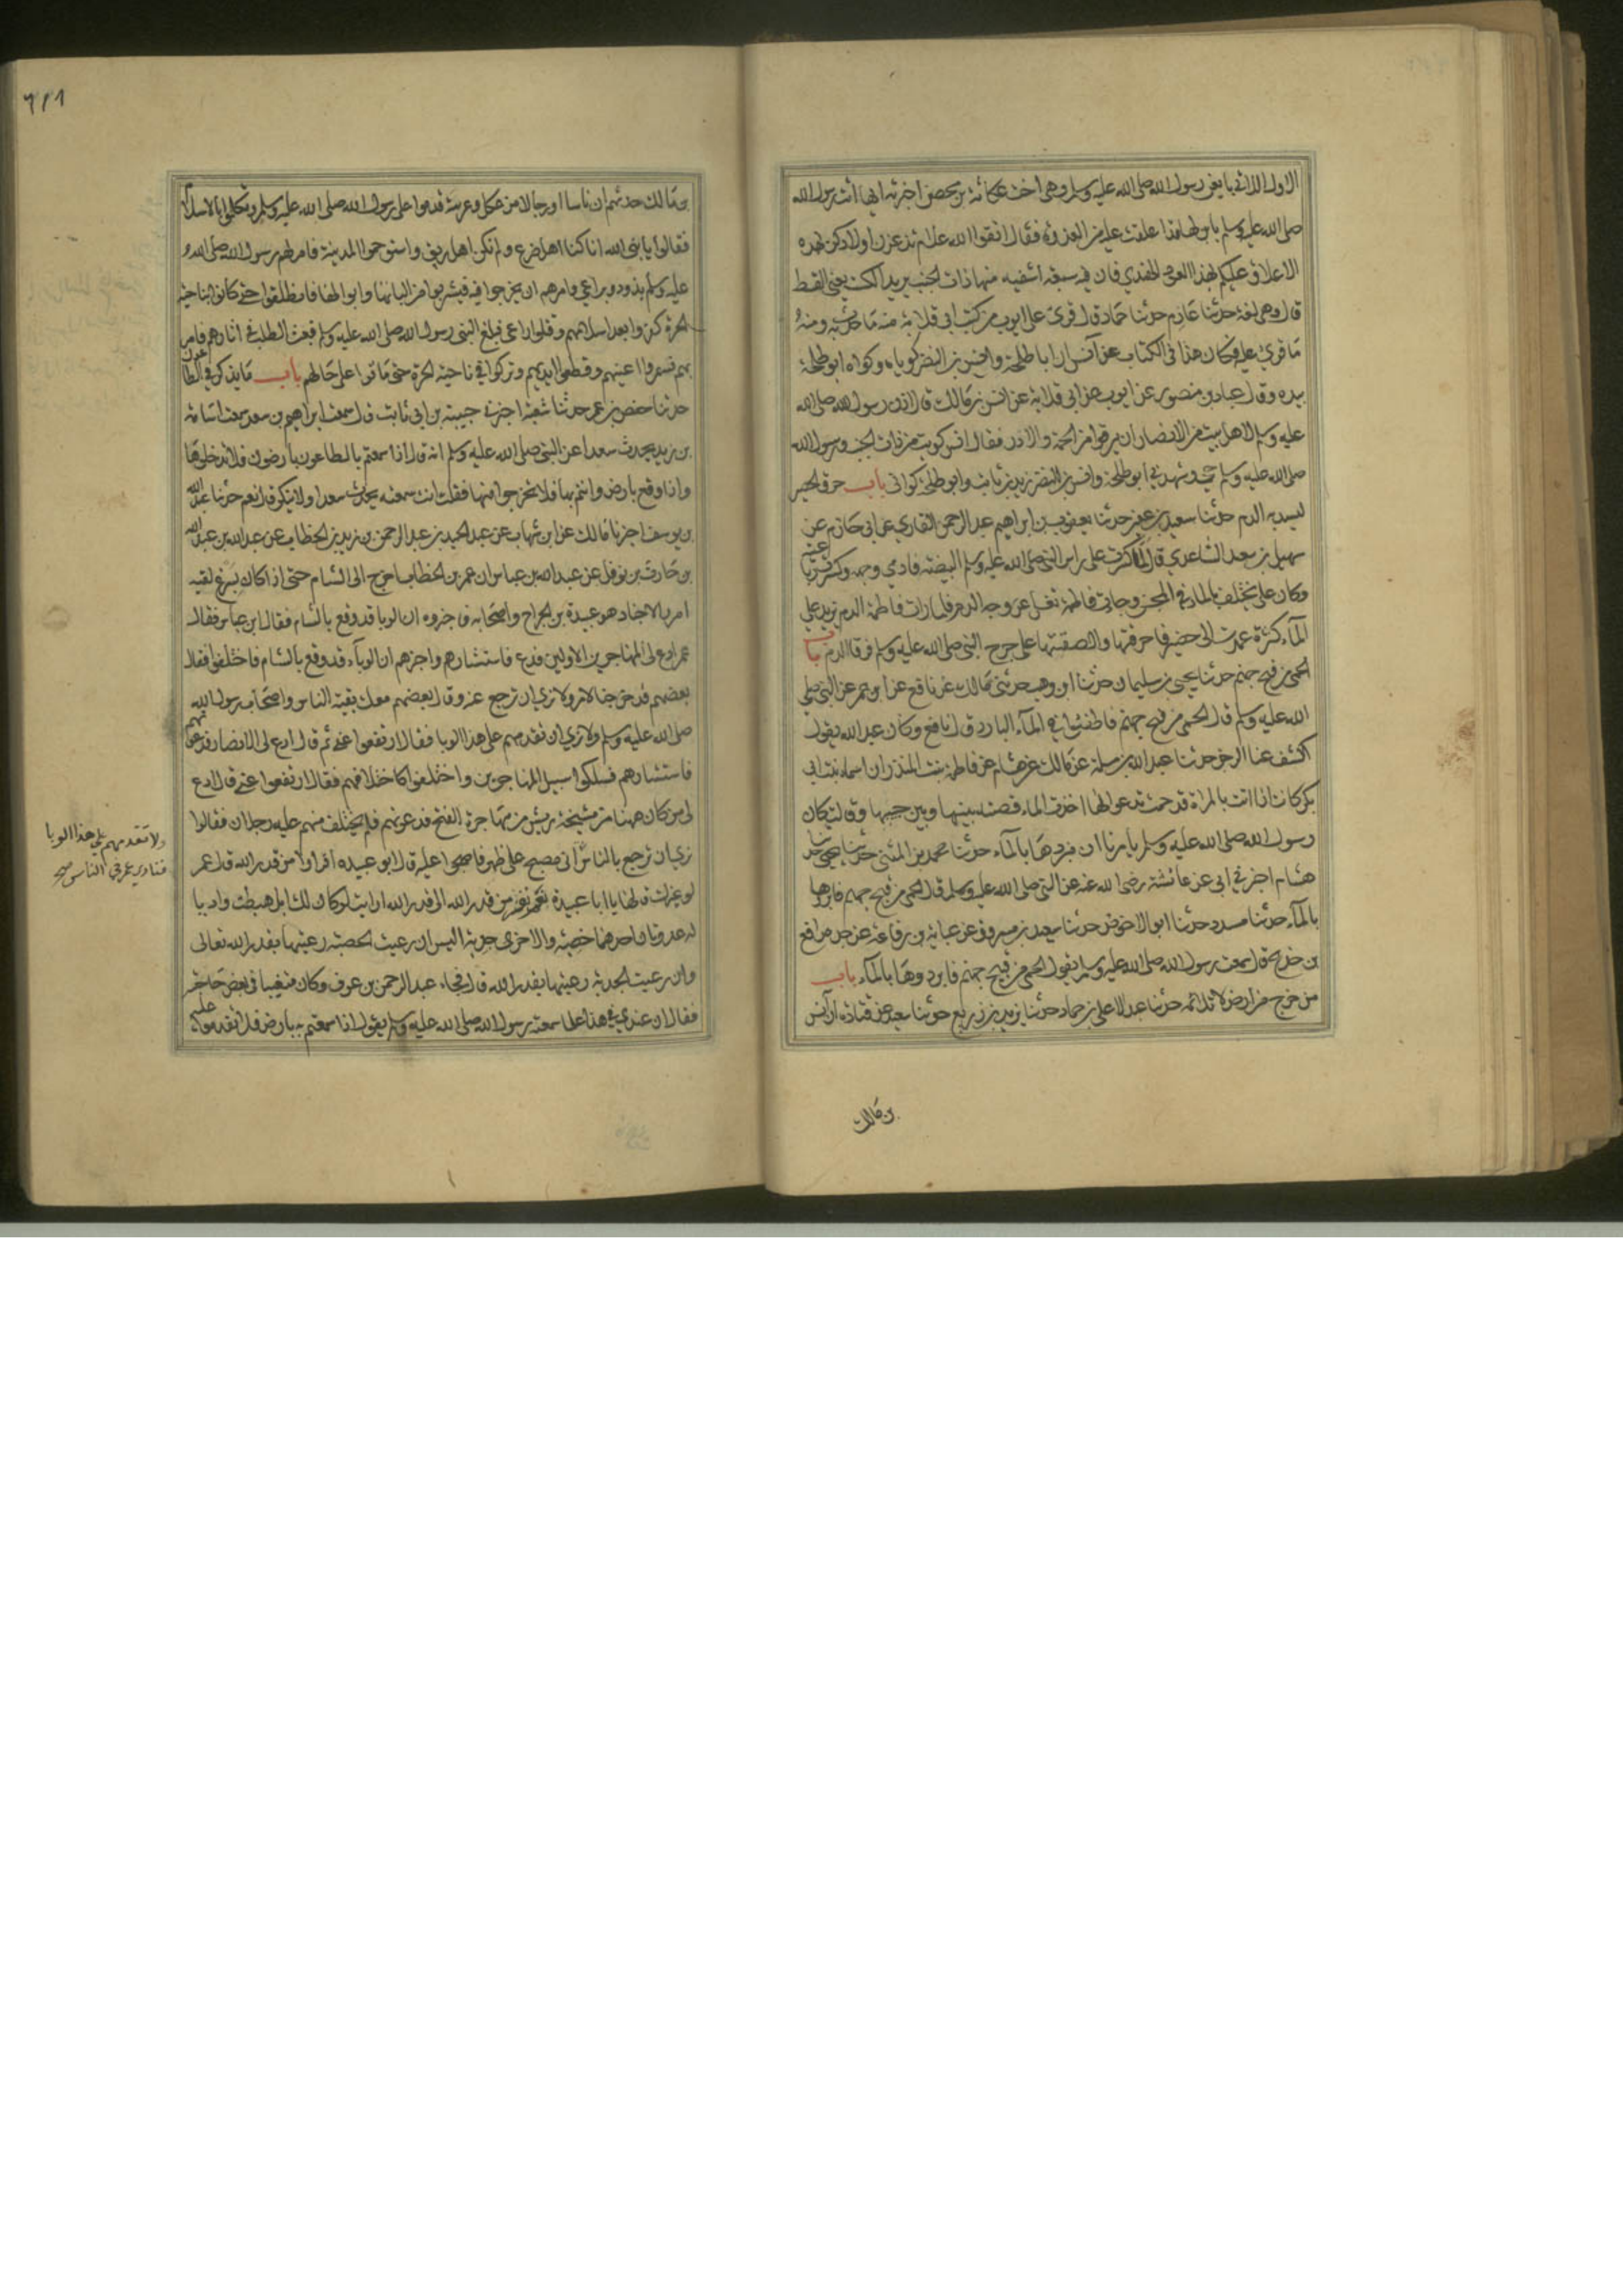 الاول اللاتي بايعن رسول الله صلى الله عليه وسلم وهي اخت عكاشة بن محصن اخبرته انها اتت رسول الله
صلى الله عليه وسلم بابن لها قد اعلقت عليه من العذرة فقال اتقوا الله علام تدغرن اولادكن بهذه
الاعلاق عليكم بهذا العود الهندي فان فيه سبعة اشفيه منها ذات الجنب يريد الكست يعني القسط
قال وهي لغة حدثنا عارم حدثنا حماد قال قرئ على ايوب من كتب ابي قلابة منه ما حدث به ومنه
ما قرئ عليه وكان هذا في الكتاب عن انس ان ابا طلحة وانس بن النضر كوياه وكواه ابو طلحة
بيده وقال عباد بن منصور عن ايوب عن ابي قلابة عن انس بن مالك قال اذن رسول الله صلى الله
عليه وسلم لاهل بيت من الانصار ان يرقوا من الحمة والاذن فقال انس كويت من ذات الجنب ورسول الله
صلى الله عليه وسلم حي وشهدني ابو طلحة وانس بن النضر زيد بن ثابت وابو طلحة كواني باب حرق الحصير
ليسد به الدم حدثنا سعيد بن عفير حدثنا يعقوب بن ابراهيم عبد الرحمن القاري عن ابي حازم عن
سهيل بن سعد الساعدي قال لما كسرت على راس النبي صلى الله عليه وسلم البيضة وادمي وجهه وكسرت رباعيته
وكان علي يختلف بالماء في المجن وجاءت فاطمة تغسل عن وجهه الدم فلما رات فاطمة الدم يزيد على
الماء كثرة عمدت الى حصير فاحرقتها والصقتها على جرح النبي صلى الله عليه وسلم فرقا الدم باب
الحمى من فيح جهنم حدثنا يحيى بن سليمان حدثنا ابن وهب حدثني مالك عن نافع عن ابن عمر عن النبي صلى
الله عليه وسلم قال الحمى من فيح جهنم فاطفئوها في الماء البارد قال نافع وكان عبد الله يقول
اكشف عنا الرجز حدثنا عبد الله بن مسلمة عن مالك عن هشام عن فاطمة بنت المنذر ان اسماء بنت ابي
بكر كانت اذا اتت بالمراة قد حمت تدعو لها اخذت الماء فصبته بينها وبين جيبها وقالت كان
رسول الله صلى الله عليه وسلم يامرنا ان نبردها بالماء حدثنا محمد بن المثنى حدثنا يحيى حدثنا
هشام اخبرني ابي عن عائشة رضي الله عنه عن النبي صلى الله عليه وسلم قال الحمى من فيح جهنم فابردوها
بالماء حدثنا مسدد حدثنا ابو الاحوص حدثنا سعيد بن مسروق عن عباية بن رفاعة عن جده رافع
بن خديج قال سمعت رسول الله صلى الله عليه وسلم يقول الحمى من فيح جهنم فابردوها بالماء باب
من خرج من ارض لا تلائمه حدثنا عبد الاعلى بن حماد حدثنا يزيد بن زريع حدثنا سعيد عن قتادة ان انس
بن مالك
٦١١
بن مالك حدثهم ان ناسا او رجالا من عكل وعرينة قدموا على رسول الله صلى الله عليه وسلم وتكلموا بالاسلام
فقالوا يا نبي الله انا كنا اهل ضرع ولم نكن اهل ريف واستوخموا المدينة فامر لهم رسول الله صلى الله
عليه وسلم بذود وبراعي وامرهم ان يخرجوا فيه فيشربوا من البانها وابوالها فانطلقوا حتى كانوا ناحية
الحرة كفروا بعد اسلامهم وقتلوا راعي فبلغ النبي رسول الله صلى الله عليه وسلم فبعث الطلب في اثارهم فامر
بهم فسمروا اعينهم وقطعوا ايديهم وتركوا في ناحية الحرة حتى ماتوا على حالهم باب ما يذكر في الطاعون
حدثنا حفص بن عمر حدثنا شعبة اخبرني حبيب بن ابي ثابت قال سمعت ابراهيم بن سعد سمعت اسامة
بن زيد يحدث سعدا عن النبي صلى الله عليه وسلم انه قال اذا سمعتم بالطاعون بارض فلا تدخلوها
واذا وقع بارض وانتم بها فلا تخرجوا منها فقلت انت سمعته يحدث سعدا ولا ينكر قال نعم حدثنا عبد الله
بن يوسف اخبرنا مالك عن ابن شهاب عن عبد الحميد بن عبد الرحمن بن زيد بن الخطاب عن عبد الله بن عبد الله
بن حارث بن نوفل عن عبد الله بن عباس ان عمر بن الخطاب خرج الى الشام حتى اذا كان بسرغ لقيه
امراء الاجناد هو عبيدة بن الجراح واصحابه فاخبروه ان الوبا قد وقع بالشام فقال ابن عباس فقال
عمر ادع لي المهاجرين الاولين فدع فاستشارهم واخبرهم ان الوباء قد وقع بالشام فاختلفوا فقال
بعضهم قد خرجنا لامر ولا نرى ان ترجع عنه وقال بعضهم معك بقية الناس واصحاب رسول الله
صلى الله عليه وسلم ولا نرى ان تقدمهم على هذا الوبا فقال ارتفعوا عني ثم قال ادع لي الانصار فدعوتهم
فاستشارهم فسلكوا سبيل المهاجرين واختلفوا كاختلافهم فقال ارتفعوا عني قال ادع
لي من كان ههنا من مشيخة قريش من مهاجرة الفتح فدعوتهم فلم يختلف منهم عليه رجلان فقالوا
نرى ان ترجع بالناس اني مصبح على ظهر فاصبحوا عليه قال ابو عبيده افرارا من قدر الله قال عمر
لو غيرك قالها يا ابا عبيدة نعم نفر من قدر الله الى قدر الله ارايت لو كان لك ابل هبطت واديا
له عدوتان احدهما خصبة والاخرى جدبة اليس ان رعيت الخصبة رعيتها بقدر الله تعالى
وان رعيت الجدبة رعيتها بقدر الله قال فجاء عبد الرحمن بن عوف وكان متغيبا في بعض حاجته
فقال ان عندي في هذا علما سمعت رسول الله صلى الله عليه وسلم يقول اذا سمعتم به بارض فلا تقدموا عليه
ولا تقدمهم على هذا الوبا
فنادى عمر في الناس صح